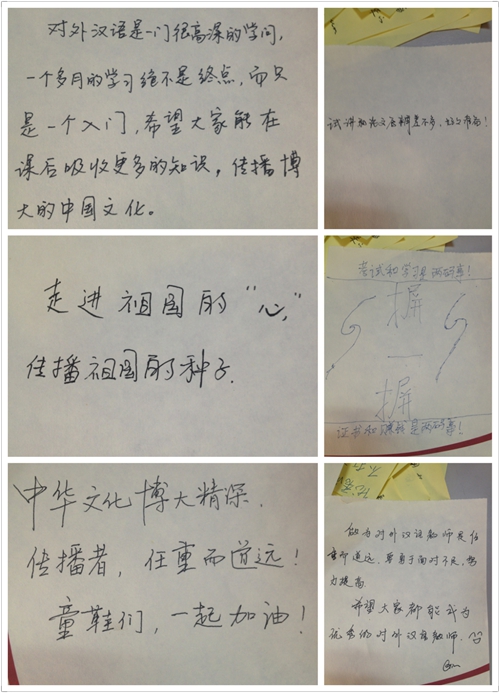 对外汉语是一门很高深的学问,
一个多月的学习绝不是终点,而只
是一个入门,希望大家能在
课后吸收更多的知识,传播博
大的中国文化。
试讲和 差不多,好好准备!
走进祖国的“心”,
传播祖国的种子.
考试和学习是两码事!
摒
一
摒
证书和 是两码事!
中华文化博大精深.
传播者,任重而道远!
童鞋们,一起加油!
做为对外汉语教师是任
重而道远,要勇于面对不足,努
力提高.
希望大家都能成为
优秀的对外汉语教师.